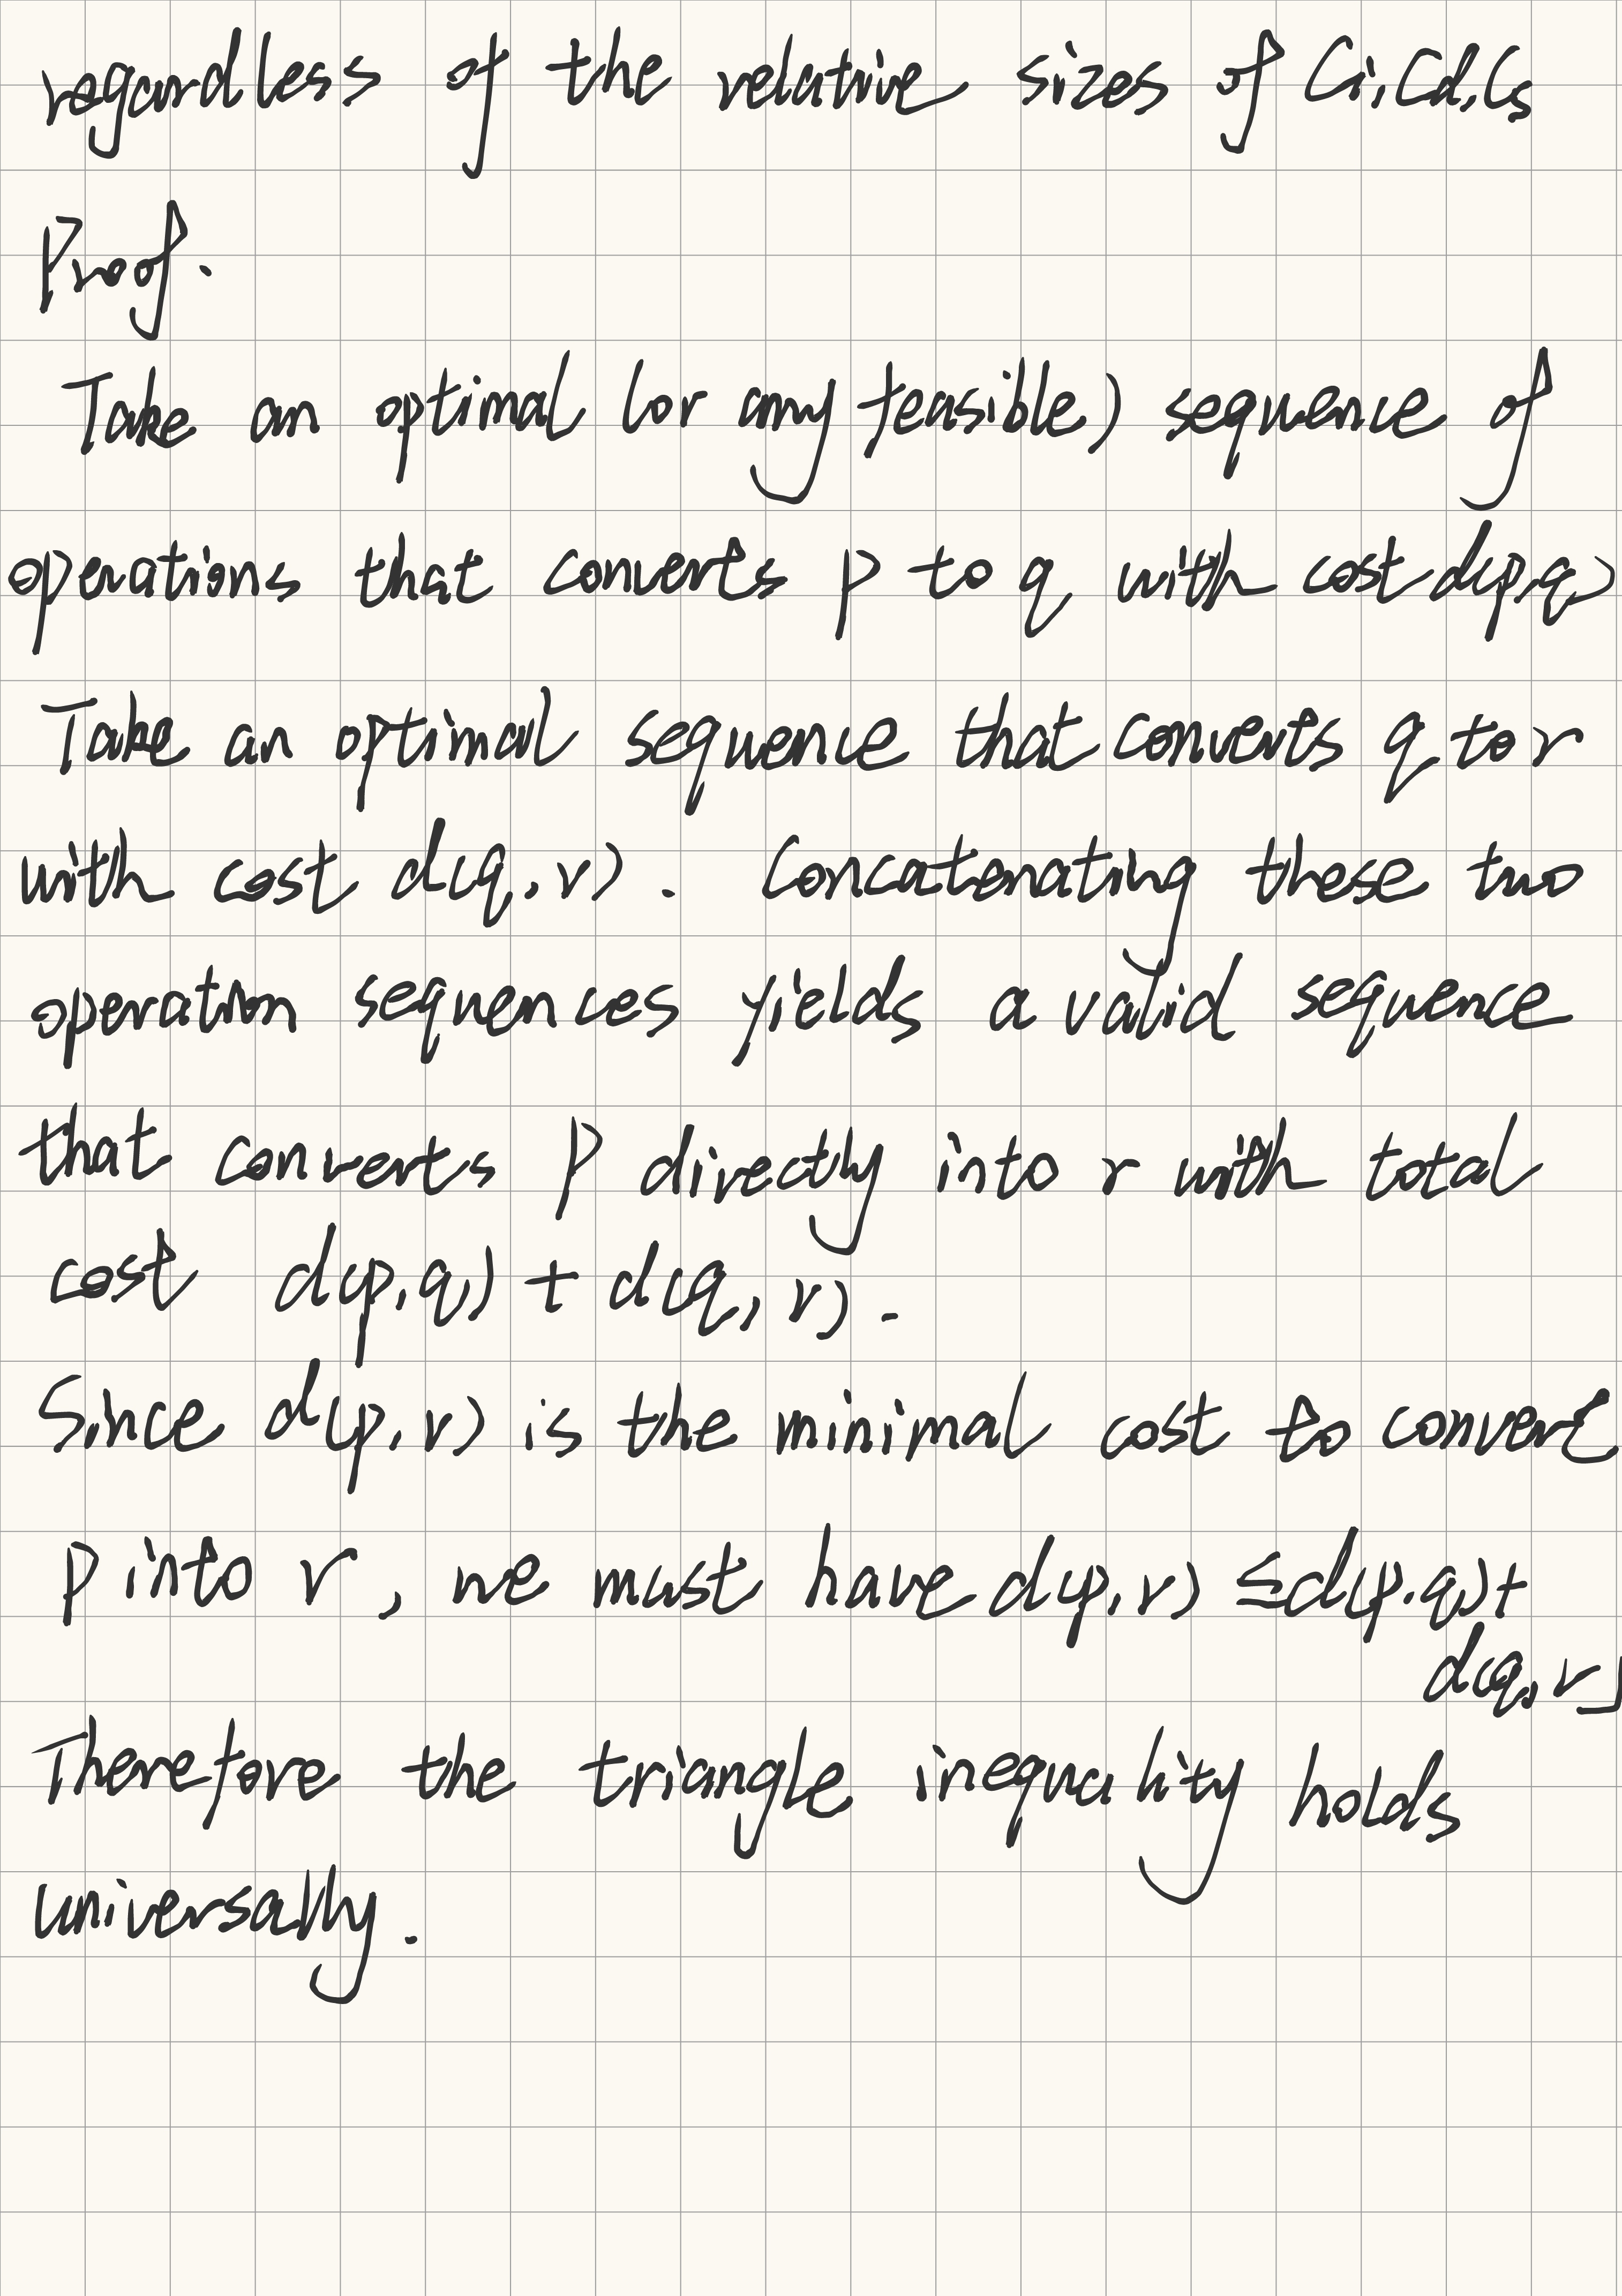 regardless of the relative sizes of Ci, Cd, Cs
Proof.
Take an optimal (or any feasible) sequence of
operations that converts p to q with cost d(p,q)
Take an optimal sequence that converts q to r
with cost d(q,r). Concatenating these two
operation sequences yields a valid sequence
that converts p directly into r with total
cost d(p,q) + d(q,r).
Since d(p,r) is the minimal cost to convert
p into r, we must have d(p,r) ≤ d(p,q) +
d(q,r)
Therefore the triangle inequality holds
universally.